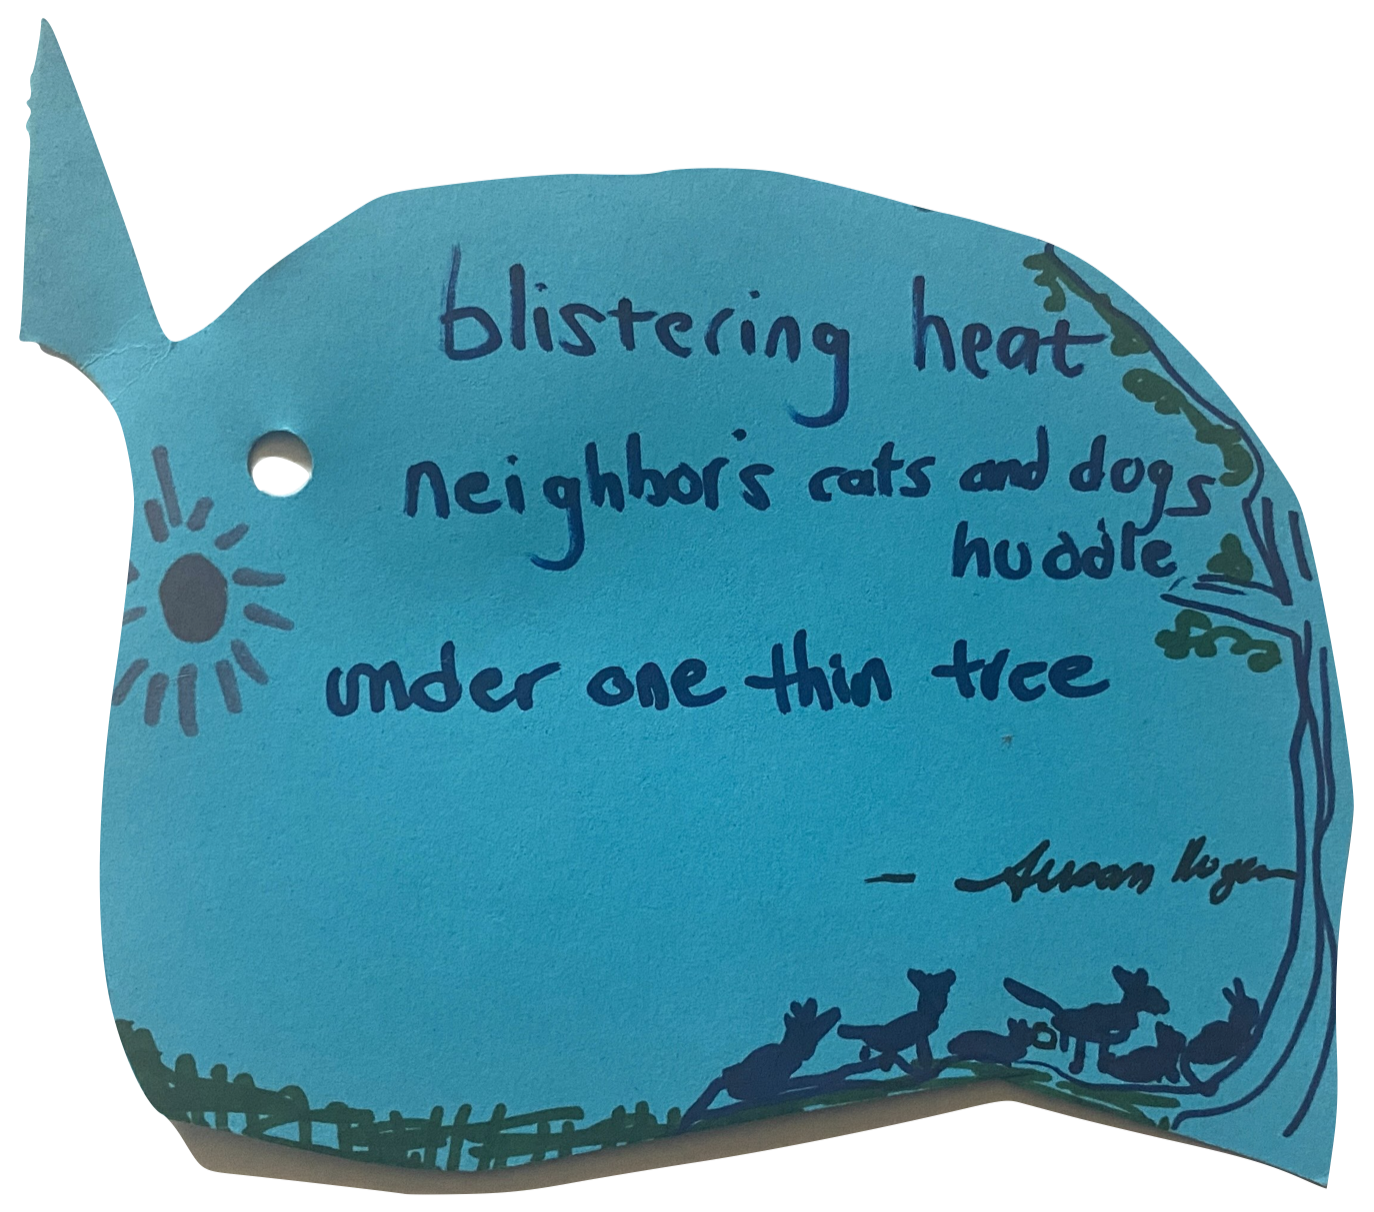 blistering heat
neighbor's cats and dogs
huddle
under one thin tree
– Susan Rogers